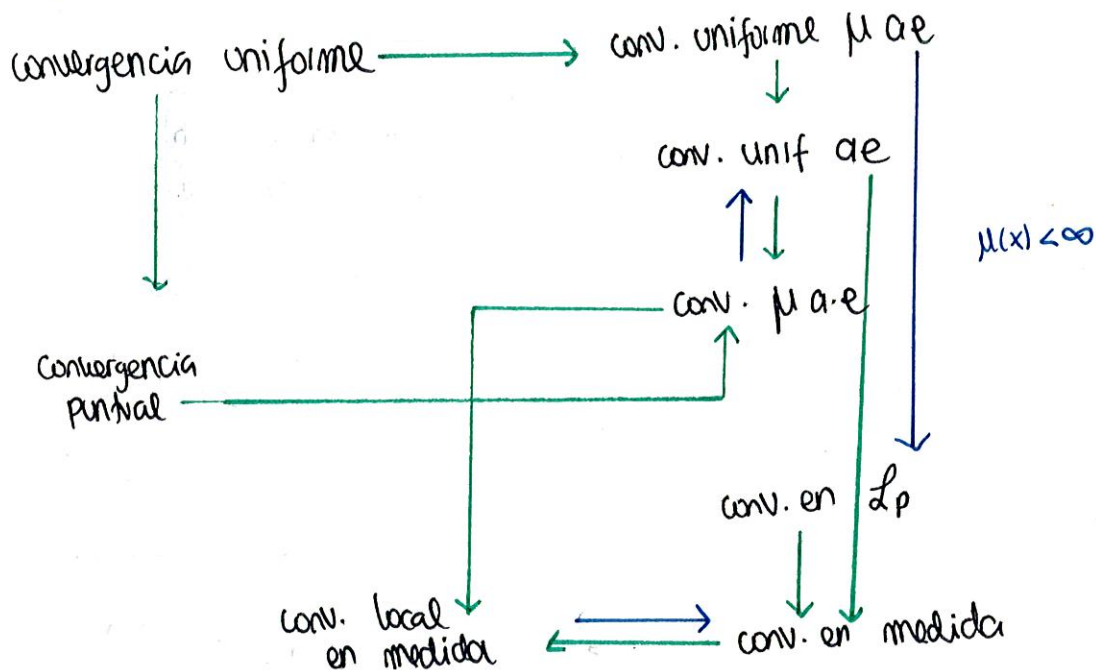 convergencia uniforme
conv. uniforme μ ae
conv. unif ae
μ(x) < ∞
conv. μ a.e
convergencia
puntual
conv. en Lp
conv. local
en medida
conv. en medida